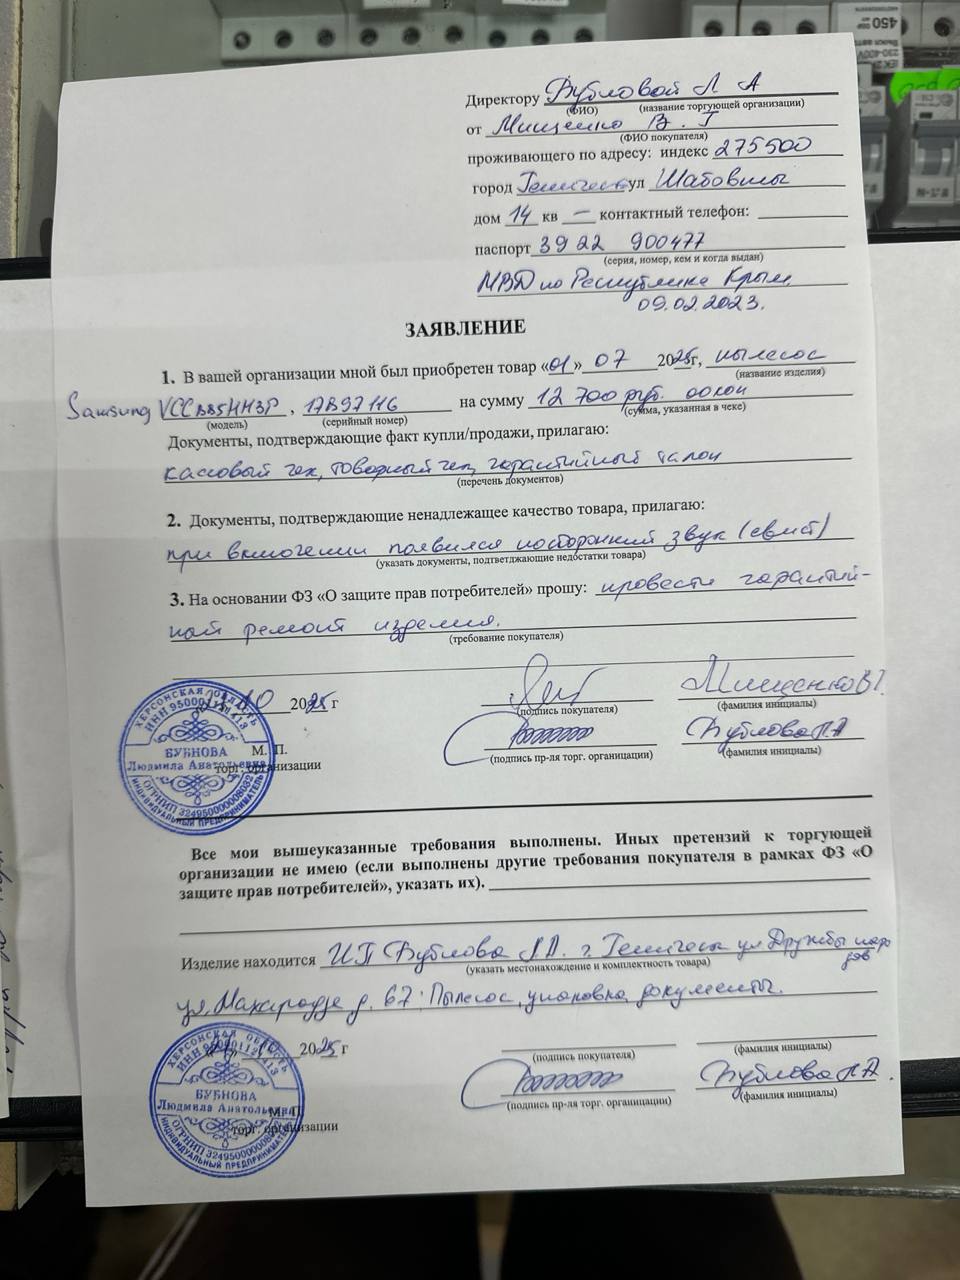 450
Директору Бубновой Л А
(ФИО) (название торгующей организации)
от Мищенко В. Г
(ФИО покупателя)
проживающего по адресу: индекс 275500
город Геническ ул
дом 14 кв — контактный телефон:
паспорт 39 22 900477
(серия, номер, кем и когда выдан)
МВД по Республике Крым
09.02.2023.
ЗАЯВЛЕНИЕ
1. В вашей организации мной был приобретен товар «01» 07 2025г, пылесос
(название изделия)
Samsung VCC885HH3P, 17B97116 на сумму 12 700 руб. 00 коп
(модель) (серийный номер) (сумма, указанная в чеке)
Документы, подтверждающие факт купли/продажи, прилагаю:
кассовый чек, товарный чек, гарантийный талон
(перечень документов)
2. Документы, подтверждающие ненадлежащее качество товара, прилагаю:
при включении появился посторонний звук (свист)
(указать документы, подтветджающие недостатки товара)
3. На основании ФЗ «О защите прав потребителей» прошу: провести гарантий-
ный ремонт изделия.
(требование покупателя)
10 2025 г Мищенко В Г.
(подпись покупателя) (фамилия инициалы)
М. П. Бубнова Л А
торг. организации (подпись пр-ля торг. органицации) (фамилия инициалы)
ХЕРСОНСКАЯ ОБЛАСТЬ
БУБНОВА
Людмила Анатольевна
ОГРНИП 324950000008032
ИНДИВИДУАЛЬНЫЙ ПРЕДПРИНИМАТЕЛЬ
Все мои вышеуказанные требования выполнены. Иных претензий к торгующей
организации не имею (если выполнены другие требования покупателя в рамках ФЗ «О
защите прав потребителей», указать их).
Изделие находится ИП Бубнова Л.А. г. Геническ ул Дружбы народов
(указать местонахождение и комплектность товара)
ул. Махарадзе д. 67: Пылесос, упаковка, документы.
2025 г
(подпись покупателя) (фамилия инициалы)
М. П. Бубнова Л А.
торг. организации (подпись пр-ля торг. органицации) (фамилия инициалы)
ХЕРСОНСКАЯ ОБЛАСТЬ
БУБНОВА
Людмила Анатольевна
ИНДИВИДУАЛЬНЫЙ ПРЕДПРИНИМАТЕЛЬ